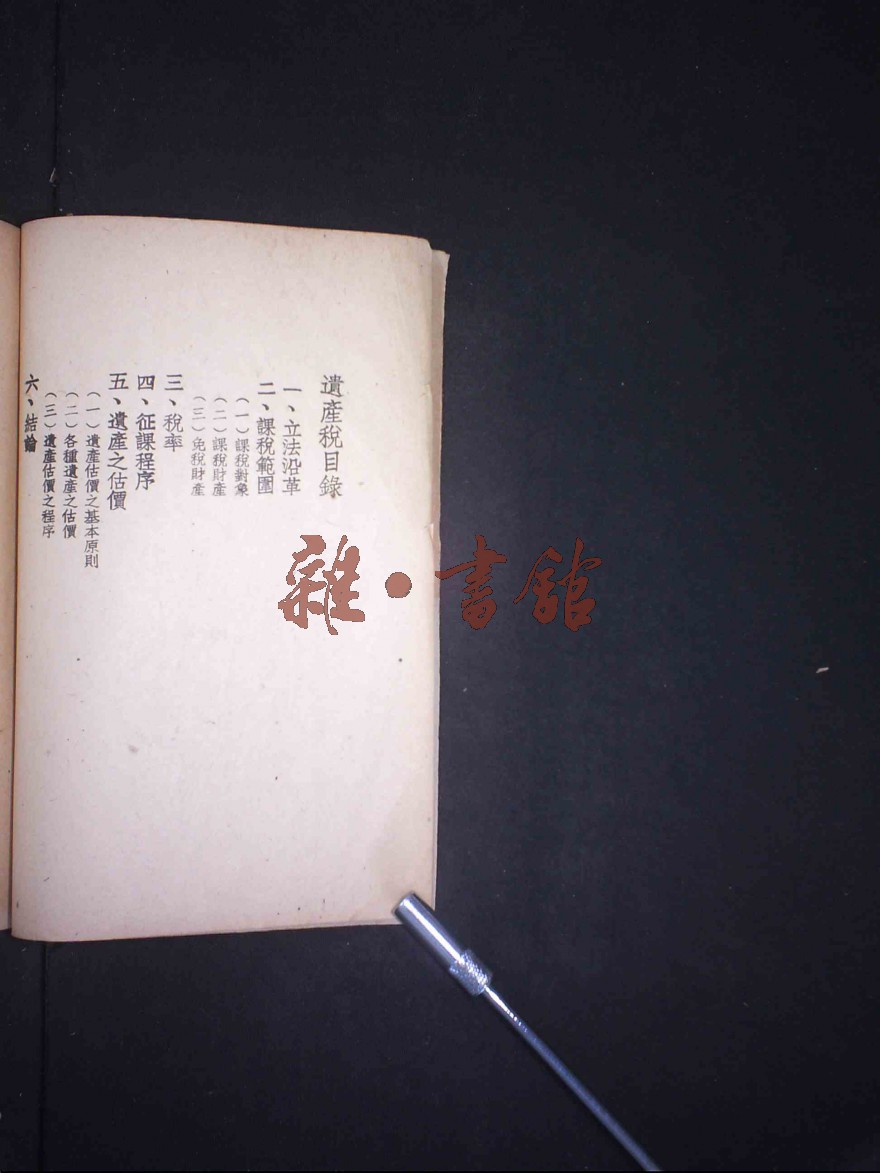 遺產稅目錄
一、立法沿革
二、課稅範圍
（一）課稅對象
（二）課稅財產
（三）免稅財產
三、稅率
四、征課程序
五、遺產之估價
（一）遺產估價之基本原則
（二）各種遺產之估價
（三）遺產估價之程序
六、結論
雜•書館